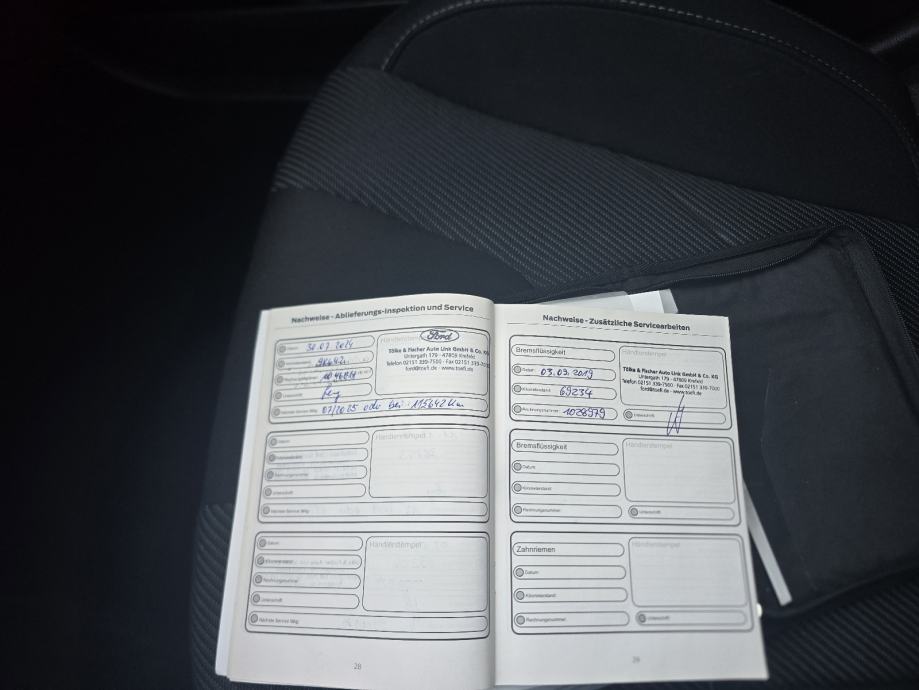 Nachweise - Ablieferungs-Inspektion und Service
Datum 30.07.2024
Händlerstempel
Ford
Tölke & Fischer Auto Link GmbH & Co. KG
Untergath 179 · 47805 Krefeld
Telefon 02151 339-7500 · Fax 02151 339-7000
ford@toefi.de · www.toefi.de
Kilometerstand
Rechnungsnummer
Unterschrift
Nächster Service fällig 07/2025 oder bei 115642 Km
Datum
Händlerstempel
Kilometerstand
Rechnungsnummer
Unterschrift
Nächster Service fällig
Datum
Händlerstempel
Kilometerstand
Rechnungsnummer
Unterschrift
Nächster Service fällig
28
Nachweise - Zusätzliche Servicearbeiten
Bremsflüssigkeit
Händlerstempel
Datum 03.09.2019
Kilometerstand 69234
Rechnungsnummer 1028979
Tölke & Fischer Auto Link GmbH & Co. KG
Untergath 179 · 47805 Krefeld
Telefon 02151 339-7500 · Fax 02151 339-7000
ford@toefi.de · www.toefi.de
Unterschrift
Bremsflüssigkeit
Händlerstempel
Datum
Kilometerstand
Rechnungsnummer
Unterschrift
Zahnriemen
Händlerstempel
Datum
Kilometerstand
Rechnungsnummer
Unterschrift
29